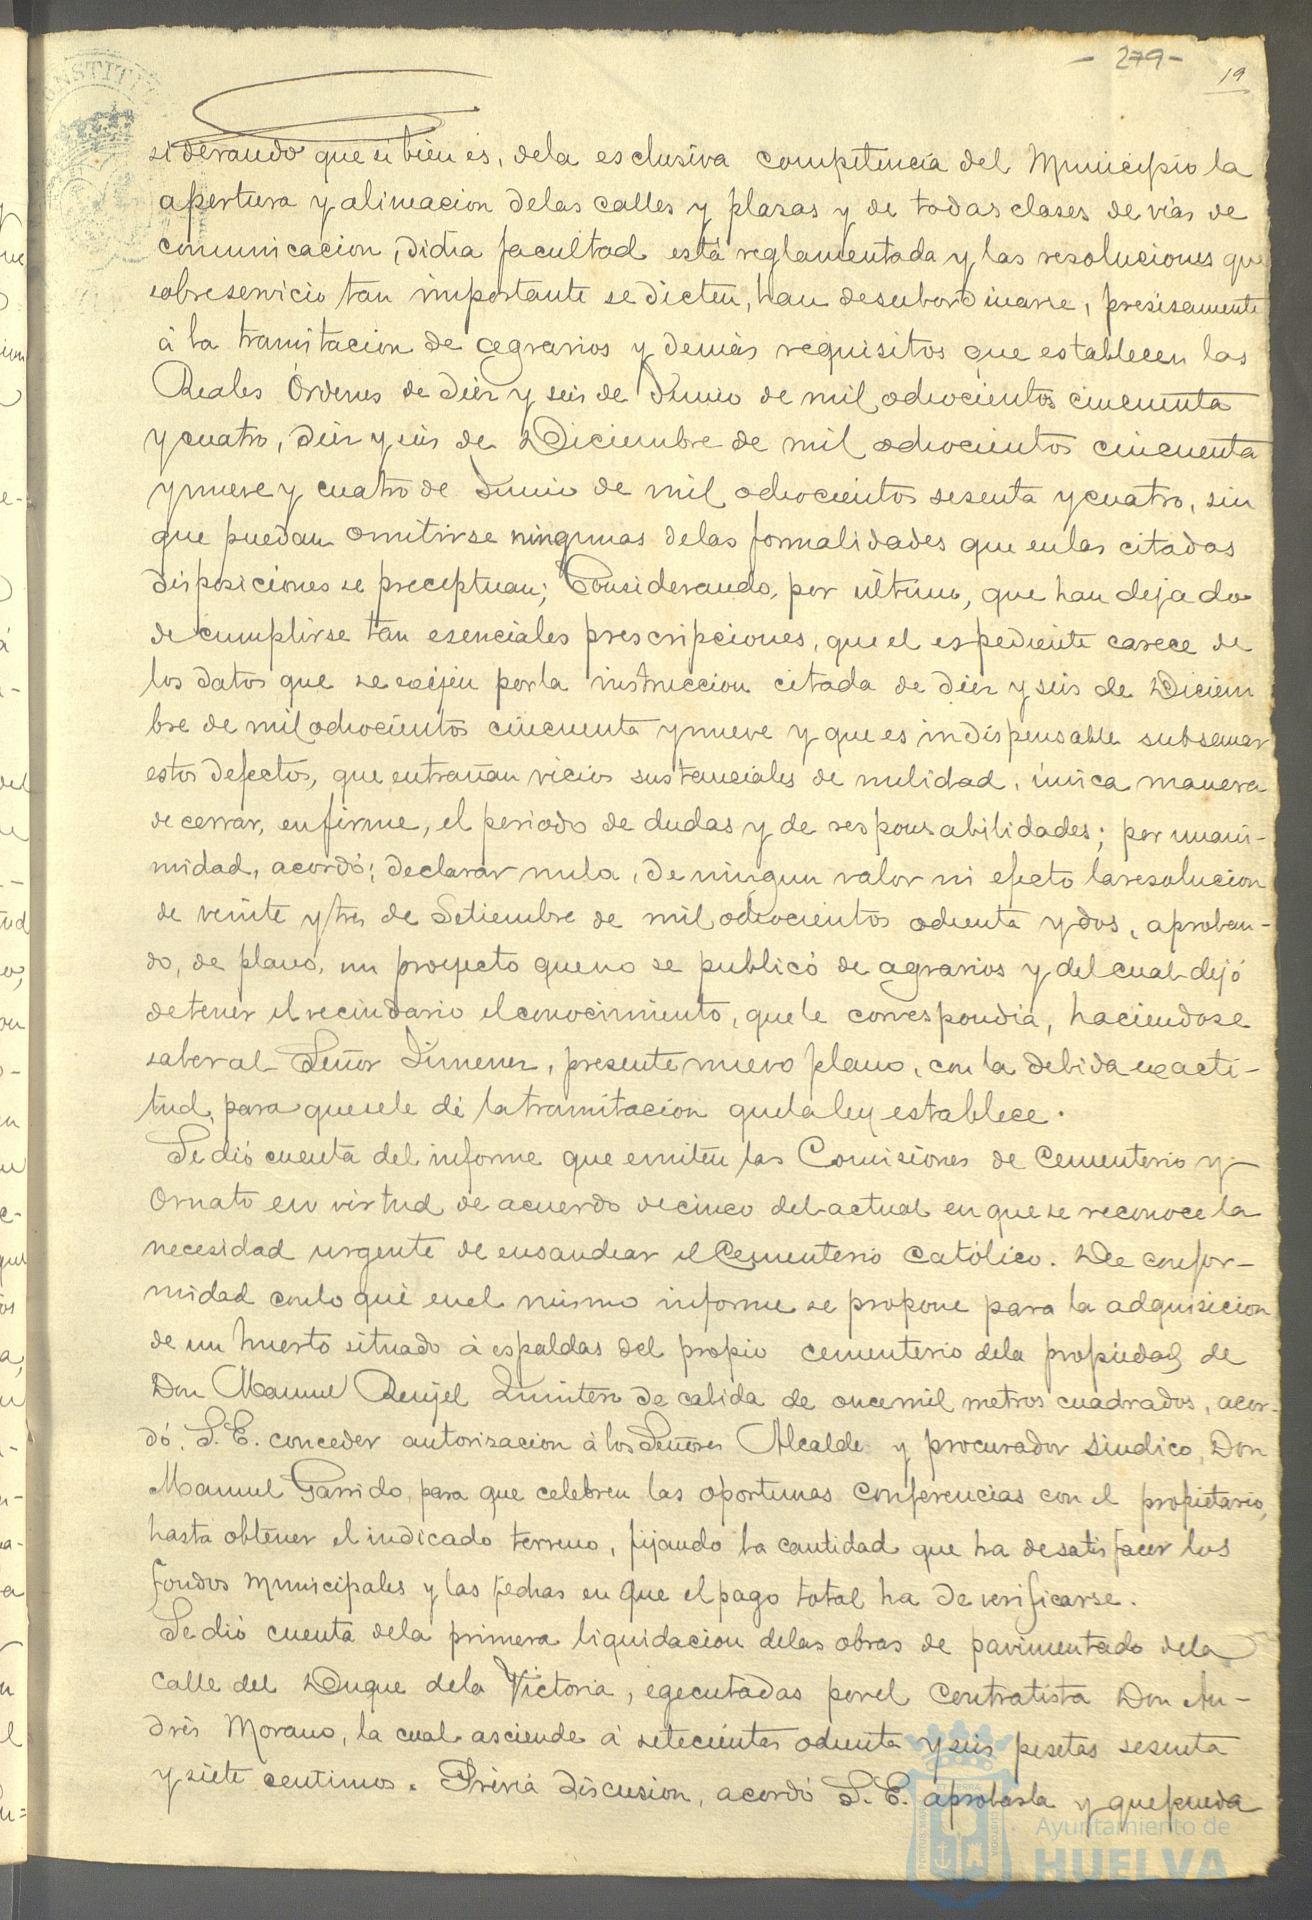 - 279 -
19
CONSTITU
siderando que si bien es, dela esclusiva competencia del Municipio la
apertura y alineacion delas calles y plazas y de todas clases de vias de
comunicacion, dicha facultad está reglamentada y las resoluciones que
sobre servicio tan importante se dicten, han desubordinarse, presisamente
á la tramitacion de agrarios y demás requisitos que establecen las
Reales Órdenes de diez y seis de Junio de mil ochocientos cincuenta
y cuatro, diez y seis de Diciembre de mil ochocientos cincuenta
y nueve y cuatro de Junio de mil ochocientos sesenta y cuatro, sin
que puedan omitirse ningunas delas formalidades que enlas citadas
disposiciones se preceptuan; Considerando, por último, que han dejado
de cumplirse tan esenciales prescripciones, que el espediente carece de
los datos que se exijen porla instruccion citada de diez y seis de Diciem
bre de mil ochocientos cincuenta y nueve y que es indispensable subsanar
estos defectos, que entrañan vicios sustanciales de nulidad, única manera
de cerrar, en firme, el periodo de dudas y de responsabilidades; por unani-
midad, acordó; declarar nula, de ningun valor ni efecto la resolucion
de veinte y tres de Setiembre de mil ochocientos ochenta y dos, aproban-
do, de plano, un proyecto que no se publicó de agrarios y del cual dejó
de tener el vecindario el conocimiento, que le correspondia, haciendose
saber al Señor Jimenez, presente nuevo plano, con la debida exacti-
tud, para que se le dé la tramitacion que la ley establece.
Se dió cuenta del informe que emiten las Comisiones de Cementerio y
Ornato en virtud de acuerdo de cinco del actual en que se reconoce la
necesidad urgente de ensanchar el Cementerio Católico. De confor-
midad conlo que enel mismo informe se propone para la adquisicion
de un huerto situado á espaldas del propio cementerio dela propiedad de
Don Manuel Rengel Quintero de cabida de once mil metros cuadrados, acor-
dó, S. E. conceder autorizacion á los Señores Alcalde y procurador Sindico, Don
Manuel Garrido, para que celebren las oportunas conferencias con el propietario,
hasta obtener el indicado terreno, fijando la cantidad que ha de satisfacer los
fondos municipales y las fechas en que el pago total ha de verificarse.
Se dió cuenta dela primera liquidacion delas obras de pavimentado dela
calle del Duque dela Victoria, egecutadas porel contratista Don An-
drés Morano, la cual asciende á setecientas ochenta y seis pesetas sesenta
y siete centimos. Prévia discusion, acordó S. E. aprobarla y que pueda
Ayuntamiento de
HUELVA